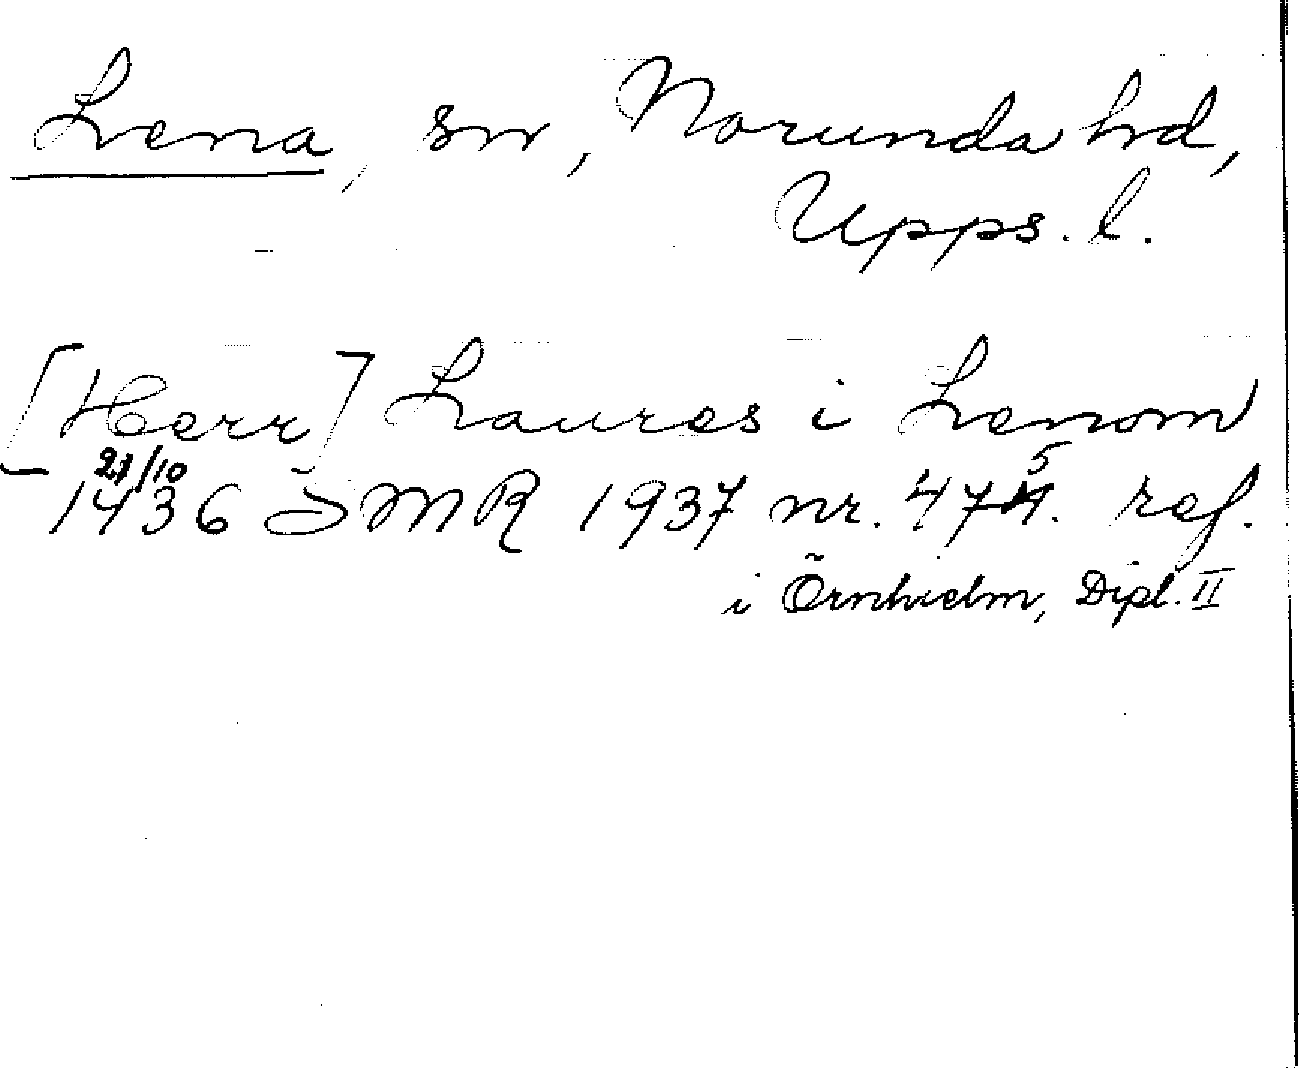 Lena, sn, Norunda hd,
Upps. l.
[Herr] Laures i Lenom
27/10
1436 SMR 1937 nr. 475. ref.
i Örnhielm, Dipl. II